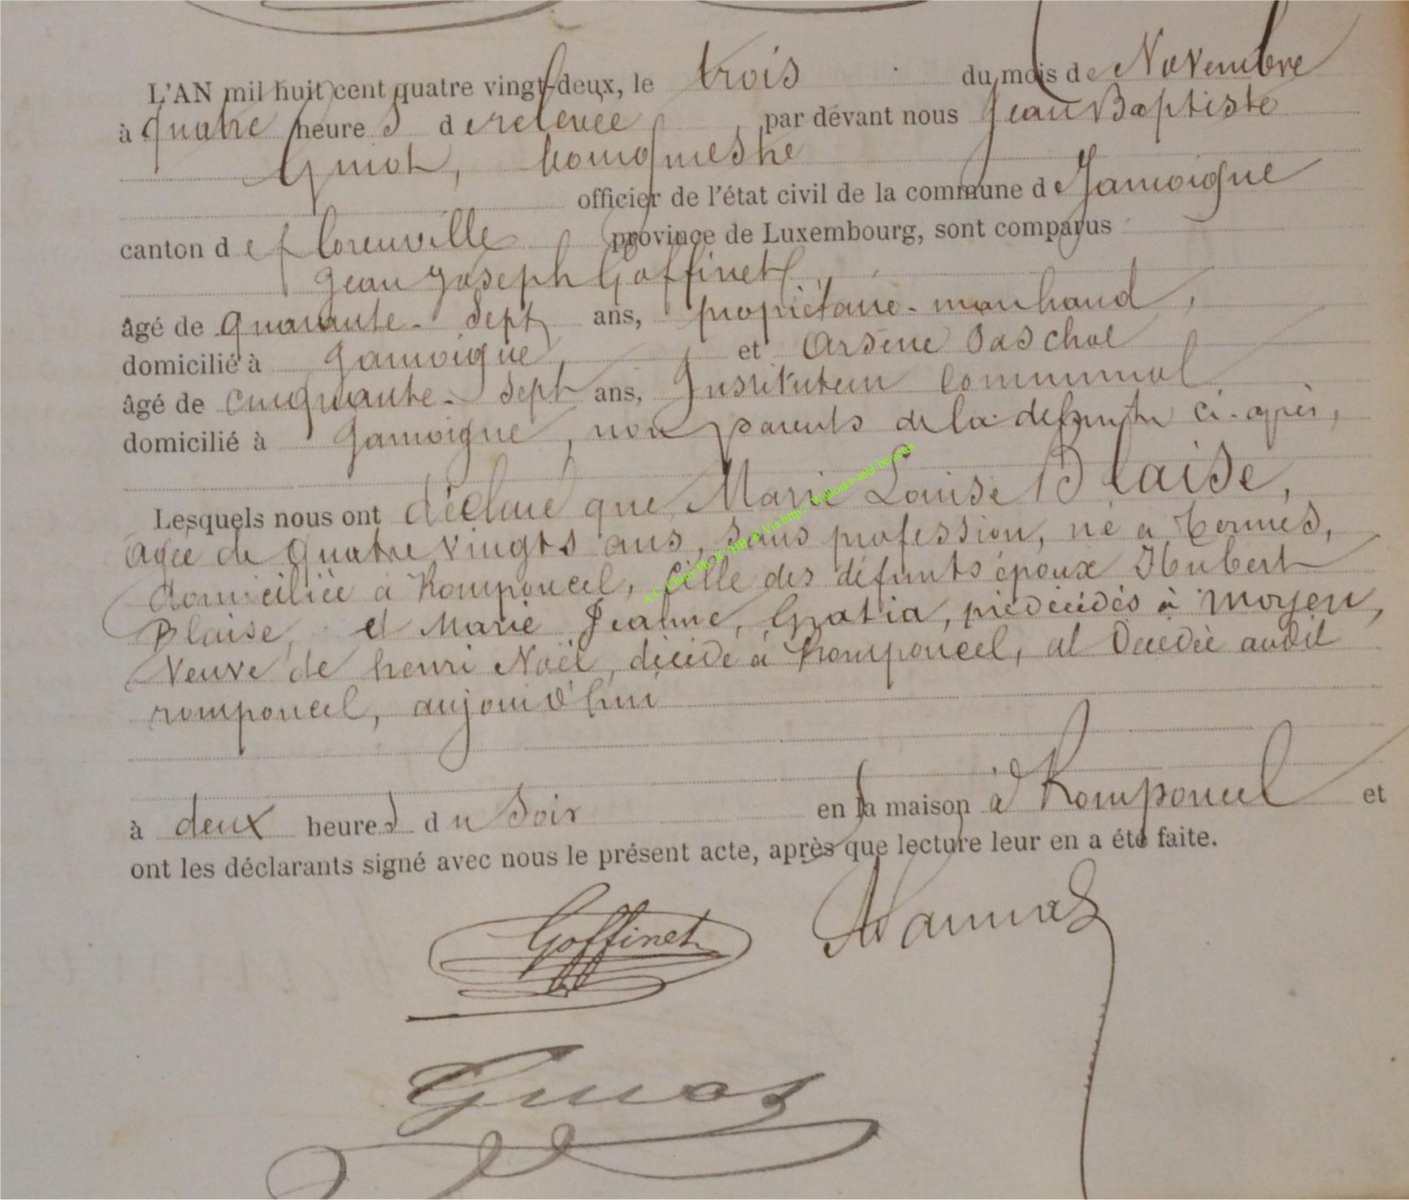 L'AN mil huit cent quatre vingt-deux, le trois du mois de Novembre
à quatre heures de relevée par devant nous Jean Baptiste
Guiot, bourgmestre
officier de l'état civil de la commune de Jamoigne
canton de florenville province de Luxembourg, sont comparus
Jean Joseph Goffinet,
âgé de quarante-sept ans, propriétaire-marchand,
domicilié à Jamoigne, et Arsène Paschal
âgé de cinquante-sept ans, Instituteur communal
domicilié à Jamoigne, non parents de la défunte ci-après,
Lesquels nous ont déclaré que Marie Louise Blaise,
agée de quatre vingts ans, sans profession, né a
domiciliée à Romponcel, fille des défunts époux Hubert
Blaise, et Marie Jeanne, Gratia, prédécédés à Moyen,
Veuve de henri Noël, décédé à Romponcel, et Décédée audit
romponcel, aujourd'hui
à deux heures du Soir en sa maison à Romponcel et
ont les déclarants signé avec nous le présent acte, après que lecture leur en a été faite.
Goffinet